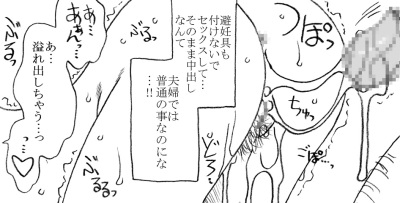 つぽっ
避妊具も
付けないで
セックスして…
そのまま中出し
なんて
夫婦では
普通の事なのにな
…!!
ちゅっ
ごぽ…っ
ぶるっ
ぶるるっ
あ…
ああんっ…
あ…
溢れ出しちゃう…っ
っ♡
ぶるっ